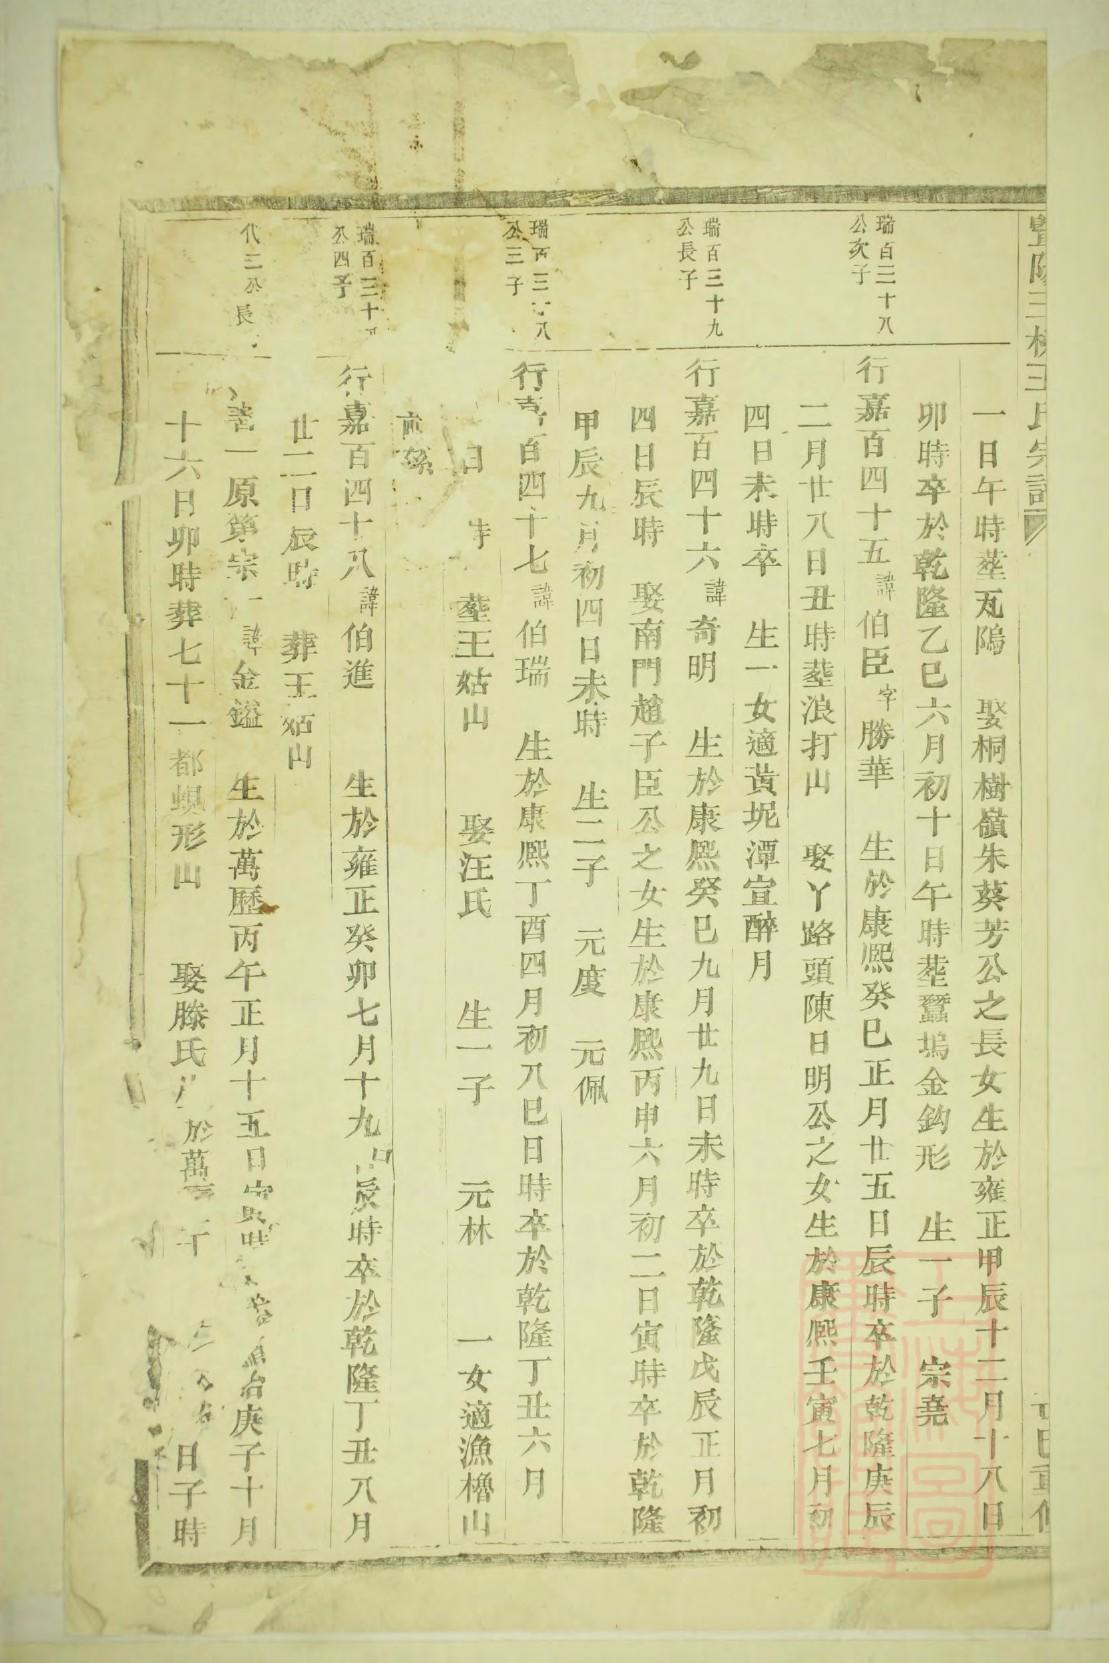 暨陽
王氏宗譜
重修
一日午時塟瓦隝　娶桐樹嶺朱葵芳公之長女生於雍正甲辰十二月十八日
卯時卒於乾隆乙巳六月初十日午時塟蠶塢金鈎形　生一子　宗堯
瑞百三十八
公次子
行嘉百四十五諱伯臣字勝華　生於康熙癸巳正月廿五日辰時卒於乾隆庚辰
二月廿八日丑時塟浪打山　娶丫路頭陳日明公之女生於康熙壬寅七月初
四日未時卒　生一女適黃坭潭宣醉月
瑞百三十九
公長子
行嘉百四十六諱奇明　生於康熙癸巳九月廿九日未時卒於乾隆戊辰正月初
四日辰時　娶南門趙子臣公之女生於康熙丙申六月初二日寅時卒於乾隆
甲辰九月初四日未時　生二子　元度　元佩
瑞百三十八
公三子
行嘉百四十七諱伯瑞　生於康熙丁酉四月初八巳日時卒於乾隆丁丑六月
日　時　塟王姑山　娶汪氏　生一子　元林　一女適漁櫓山
瑞百三十
公四子
行嘉百四十八諱伯進　生於雍正癸卯七月十九　辰時卒於乾隆丁丑八月
廿二日辰時　葬王姑山
代三公長
一原第宗一諱金鎰　生於萬歷丙午正月十五日寅時　治庚子十月
十六日卯時葬七十一都蜈形山　娶滕氏　於萬　日子時